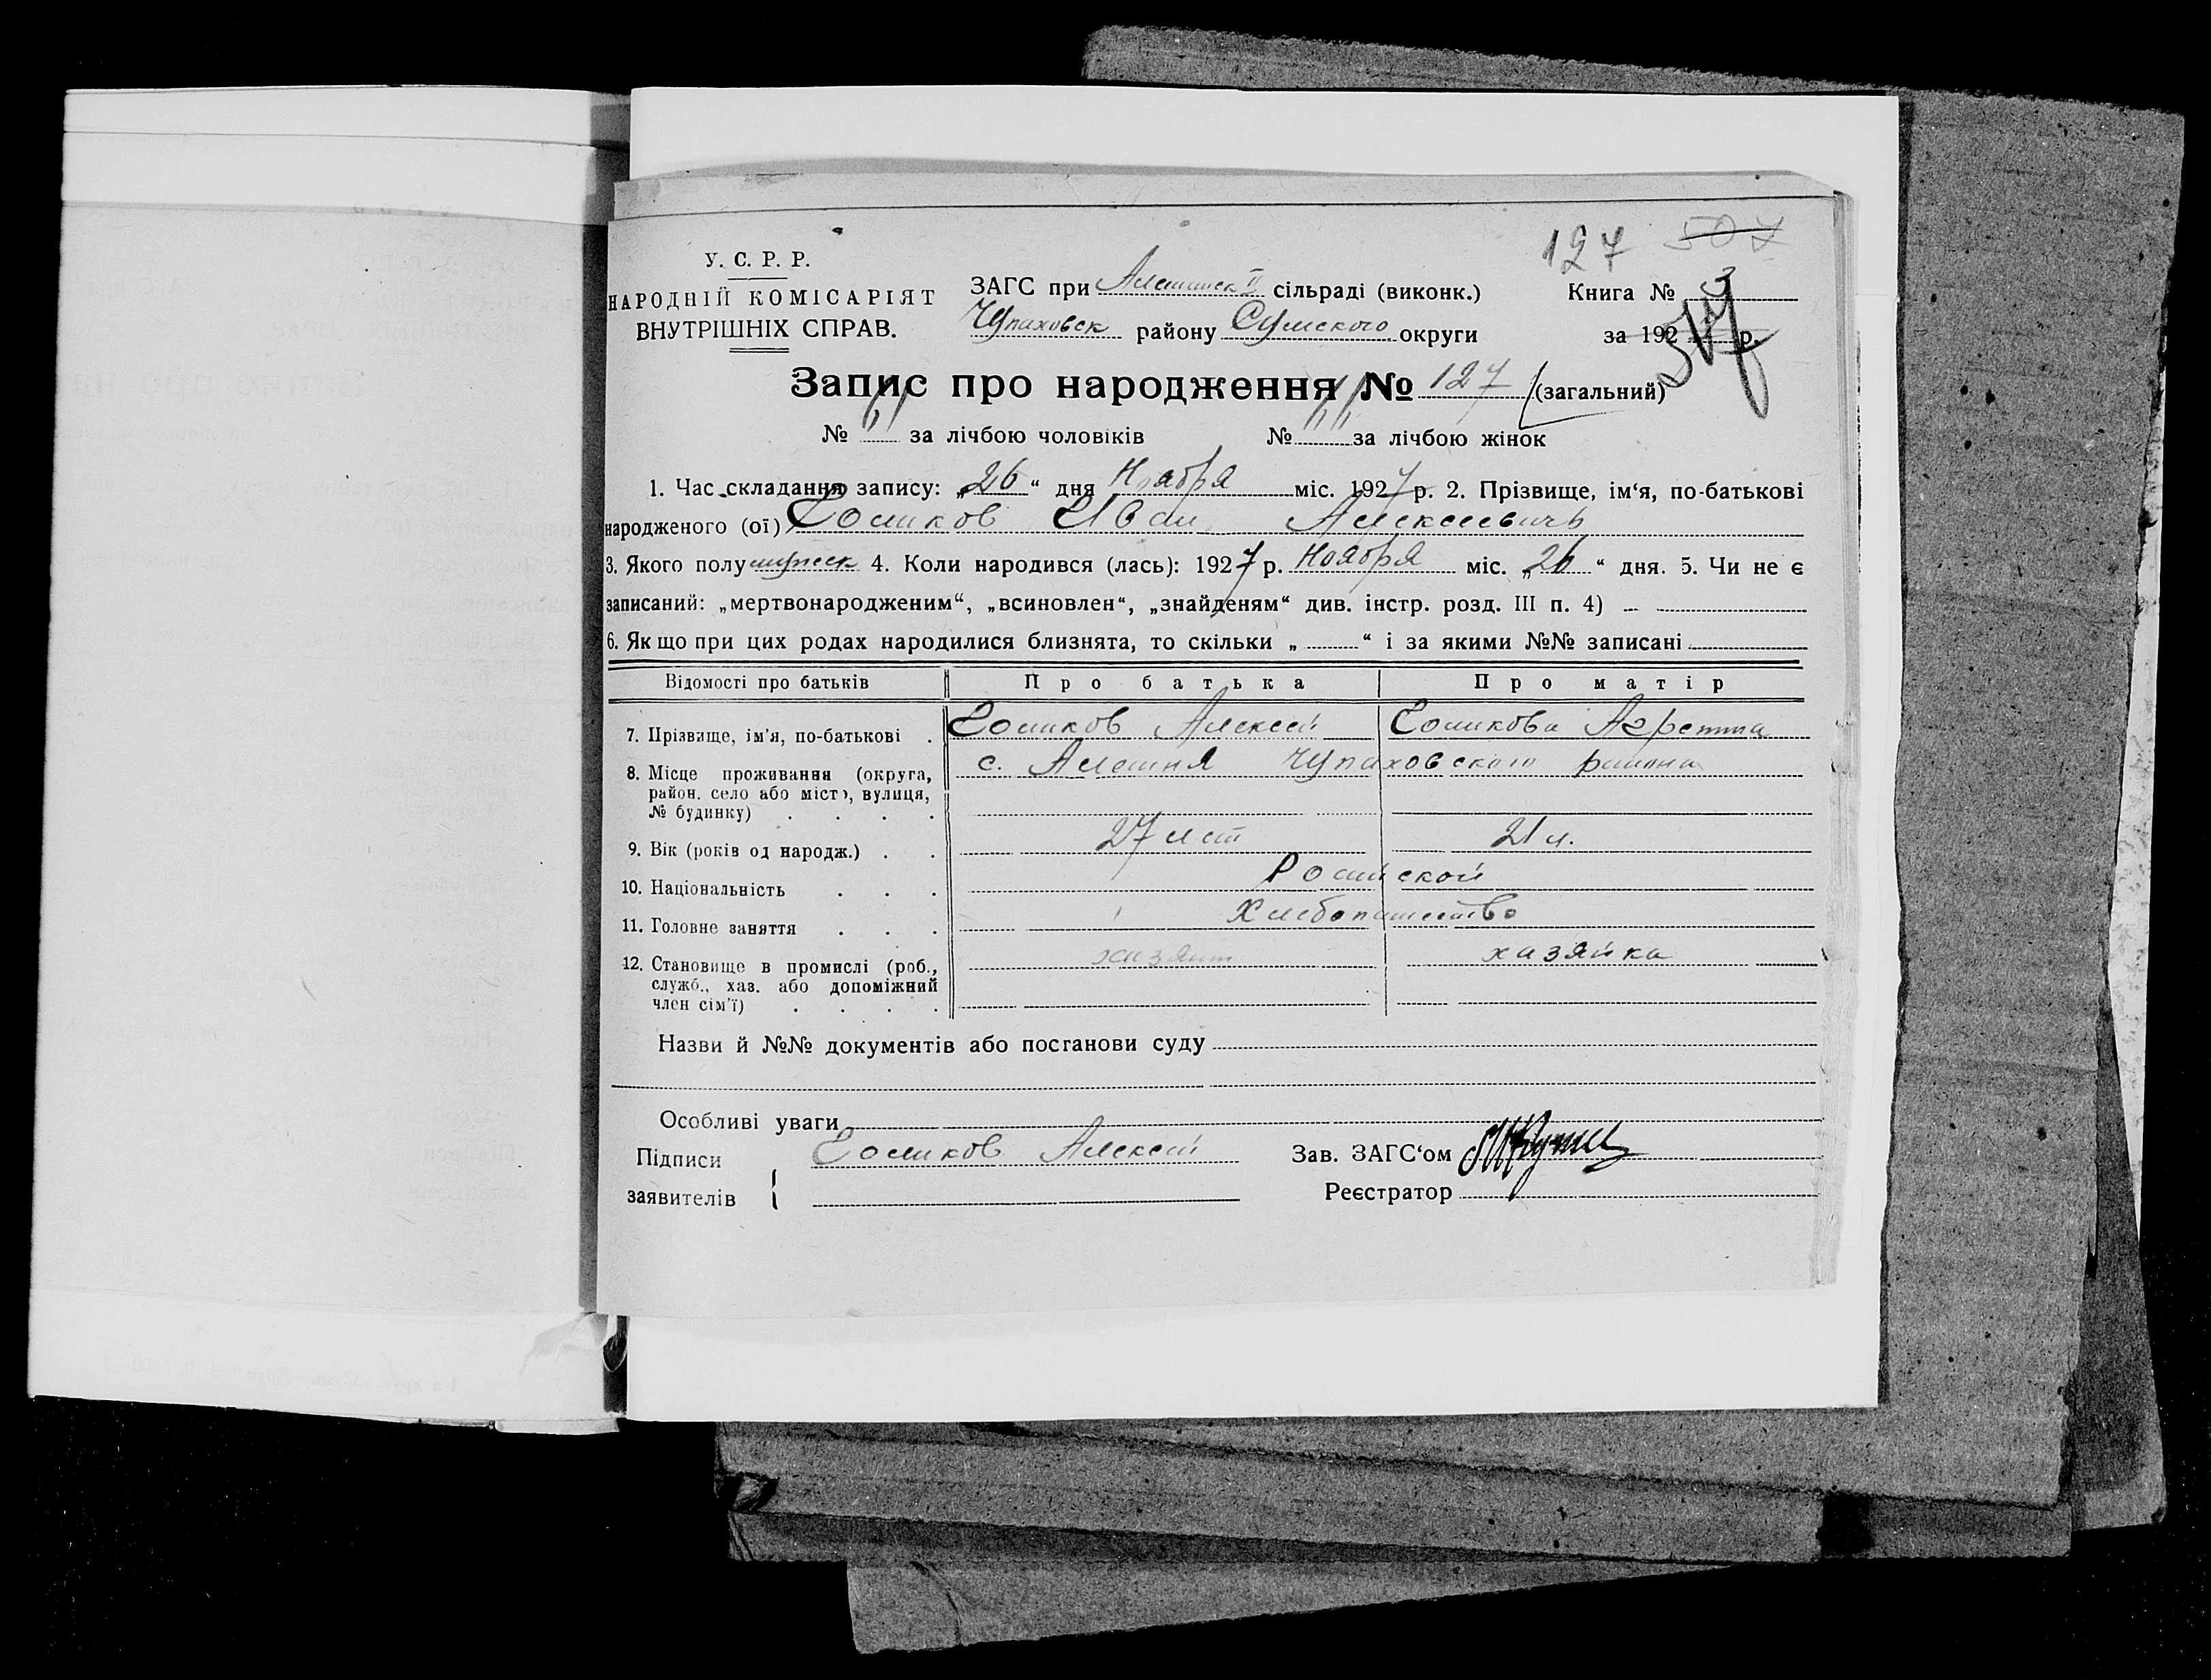 127 507
У. С. Р. Р.
НАРОДНІЙ КОМІСАРІЯТ
ВНУТРІШНІХ СПРАВ.
ЗАГС при Алешанск II сільраді (виконк.)
Чупаховск району Сумского округи
Книга № 3
за 192 р.
Запис про народження № 127 (загальний)
№ за лічбою чоловіків № за лічбою жінок
1. Час складання запису: „26“ дня Ноября міс. 1927 р. 2. Прізвище, ім‘я, по-батькові
народженого (ої) Соликов Иван Алексеевичь
3. Якого полу мужеск 4. Коли народився (лась): 1927 р. Ноября міс. „26“ дня. 5. Чи не є
записаний: „мертвонародженим“, „всиновлен“, „знайденям“ див. інстр. розд. III п. 4)
6. Якщо при цих родах народилися близнята, то скільки „ “ і за якими №№ записані
Відомості про батьків Про батька Про матір
7. Прізвище, ім'я, по-батькові Соликов Алексей Соликова Агрепина
8. Місце проживання (округа, с. Алешня Чупаховского района
район, село або місто, вулиця,
№ будинку)
9. Вік (років од народж.) 27 лет 21 л.
10. Національність Росийской
11. Головне заняття Хлебопашество
12. Становище в промислі (роб., хазяин хазяйка
служб., хаз. або допоміжний
член сім'ї)
Назви й №№ документів або постанови суду
Особливі уваги
Підписи Соликов Алексей Зав. ЗАГС‘ом
заявителів Реєстратор